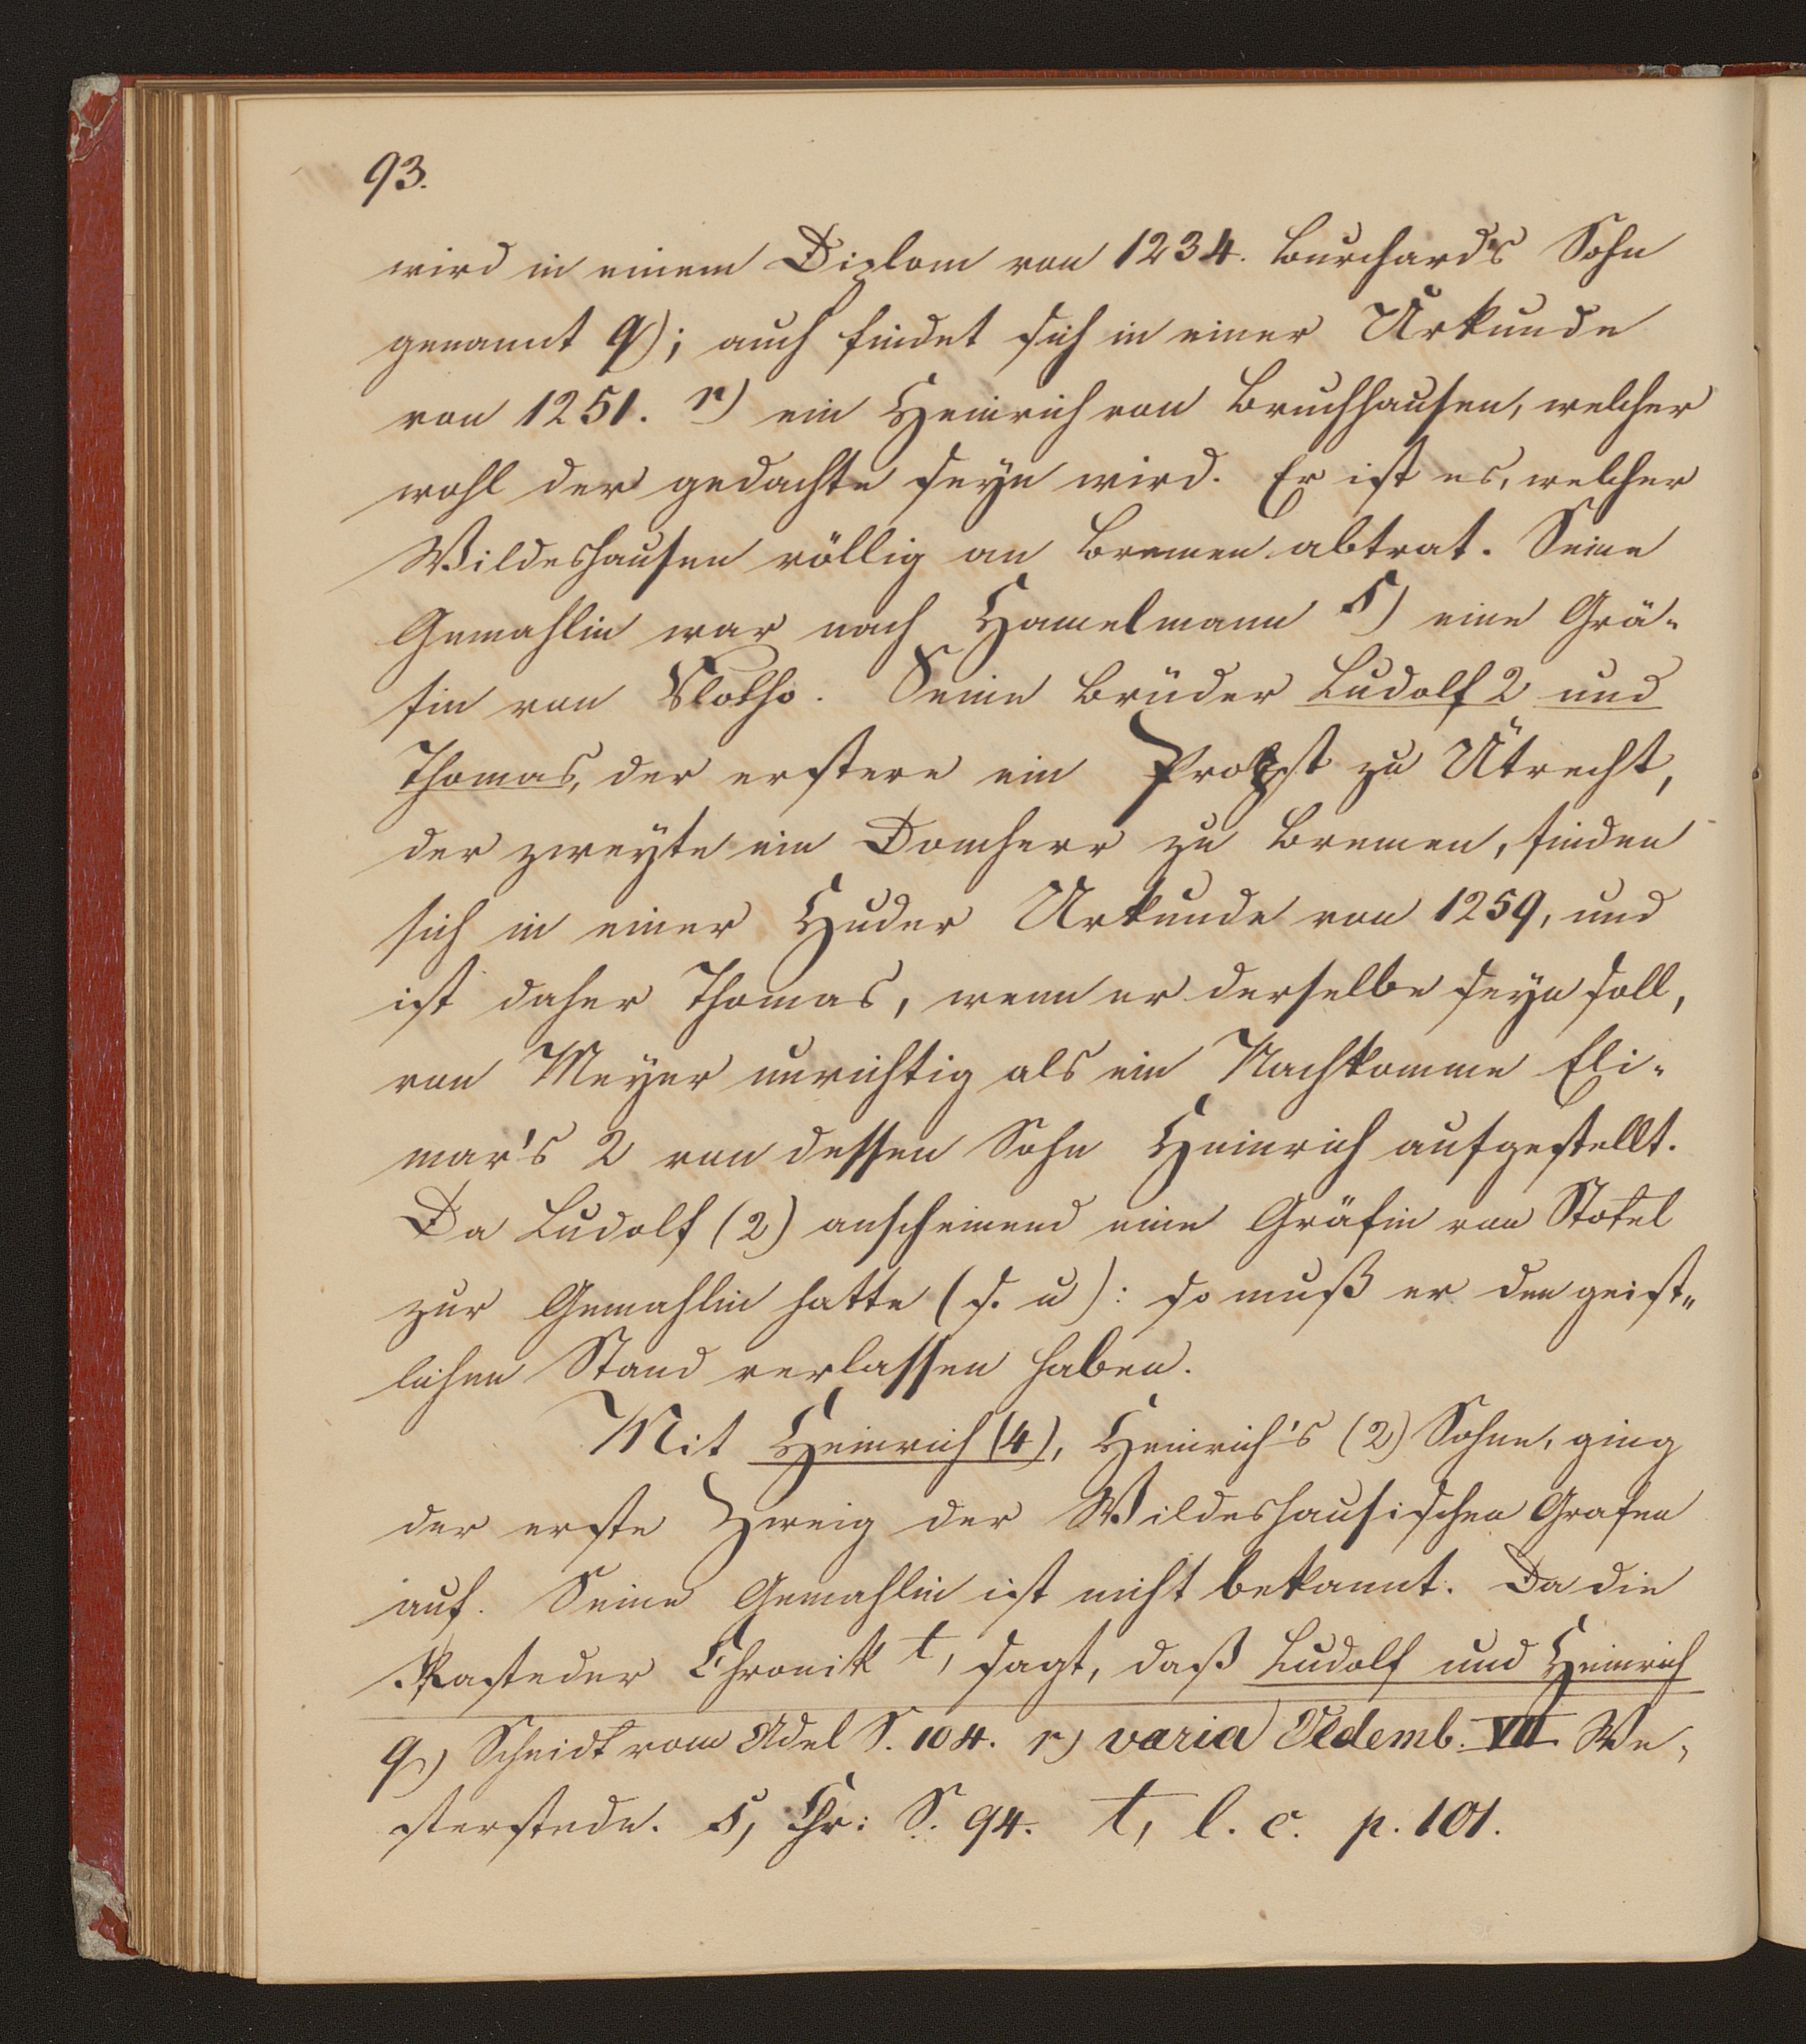 93.
wird in einem Diplom von 1234. Burchard's Sohn
genannt q); auch findet sich in einer Urkunde
von 1251. r) ein Heinrich von Bruchhausen, welcher
wohl der gedachte seyn wird. Er ist es, welcher
Wildeshausen völlig an Bremen abtrat. Seine
Gemahlin war nach Hamelmann s) eine Grä-
fin von Vlotho. Seine Brüder Ludolf 2 und
Thomas, der erstere ein Probst zu Utrecht,
der zweyte ein Domherr zu Bremen, finden
sich in einer Huder Urkunde von 1259, und
ist daher Thomas, wenn er derselbe seyn soll,
von Meyer unrichtig als ein Nachkomme Eli-
mar's 2 von dessen Sohn Heinrich aufgestellt.
Da Ludolf (2) anscheinend eine Gräfin von Stotel
zur Gemahlin hatte (s. u): so muß er den geist-
lichen Stand verlassen haben.
Mit Heinrich (4), Heinrich's (2) Sohne, ging
der erste Zweig der Wildeshausischen Grafen
auf. Seine Gemahlin ist nicht bekannt. Da die
Rasteder Chronik t, sagt, daß Ludolf und Heinrich
q) Scheidt vom Adel S. 104. r) varia Oldemb. VII We-
sterstede. s, Chr: S. 94. t, l. c. p. 101.